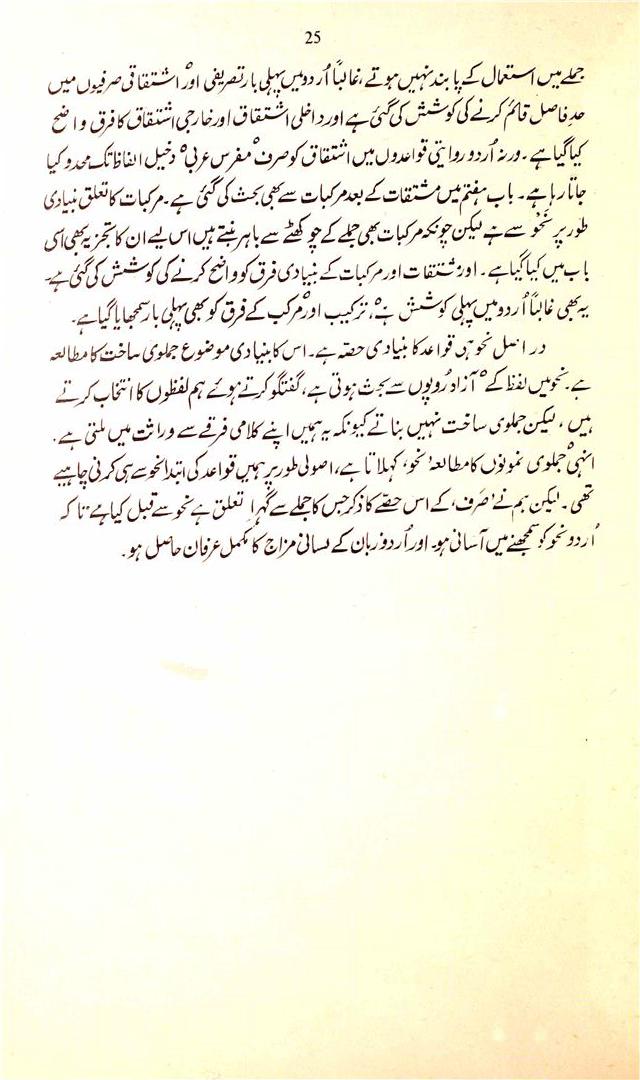 25
جملے میں استعمال کے پابند نہیں ہوتے، غالباً اُردو میں پہلی بار تصریفی اور اشتقاقی صرفیوں میں
حدِ فاصل قائم کرنے کی کوشش کی گئی ہے اور داخلی اشتقاق اور خارجی اشتقاق کا فرق واضح
کیا گیا ہے۔ ورنہ اُردو روایتی قواعدوں میں اشتقاق کو صرف مفرس عربی دخیل الفاظ تک محدود کیا
جاتا رہا ہے۔ باب ہفتم میں مشتقات کے بعد مرکبات سے بھی بحث کی گئی ہے۔ مرکبات کا تعلق بنیادی
طور پر نحو سے ہے لیکن چونکہ مرکبات بھی جملے کے چوکھٹے سے باہر بنتے ہیں اس لیے ان کا تجزیہ بھی اسی
باب میں کیا گیا ہے۔ اور مشتقات اور مرکبات کے بنیادی فرق کو واضح کرنے کی کوشش کی گئی ہے۔
یہ بھی غالباً اُردو میں پہلی کوشش ہے، ترکیب اور مرکب کے فرق کو بھی پہلی بار سمجھایا گیا ہے۔
در اصل نحو ہی قواعد کا بنیادی حصہ ہے۔ اس کا بنیادی موضوع جملوی ساخت کا مطالعہ
ہے۔ نحو میں لفظ کے آزاد رُوپوں سے بحث ہوتی ہے، گفتگو کرتے ہوئے ہم لفظوں کا انتخاب کرتے
ہیں، لیکن جملوی ساخت نہیں بناتے کیونکہ یہ ہمیں اپنے کلامی فرقے سے وراثت میں ملتی ہے۔
انہی جملوی نمونوں کا مطالعہ ’نحو‘ کہلاتا ہے، اصولی طور پر ہمیں قواعد کی ابتدا نحو سے ہی کرنی چاہیے
تھی۔ لیکن ہم نے ’صَرف‘ کے اس حصّے کا ذکر جس کا جملے سے گہرا تعلق ہے نحو سے قبل کیا ہے تاکہ
اُردو نحو کو سمجھنے میں آسانی ہو۔ اور اُردو زبان کے لسانی مزاج کا مکمل عرفان حاصل ہو۔